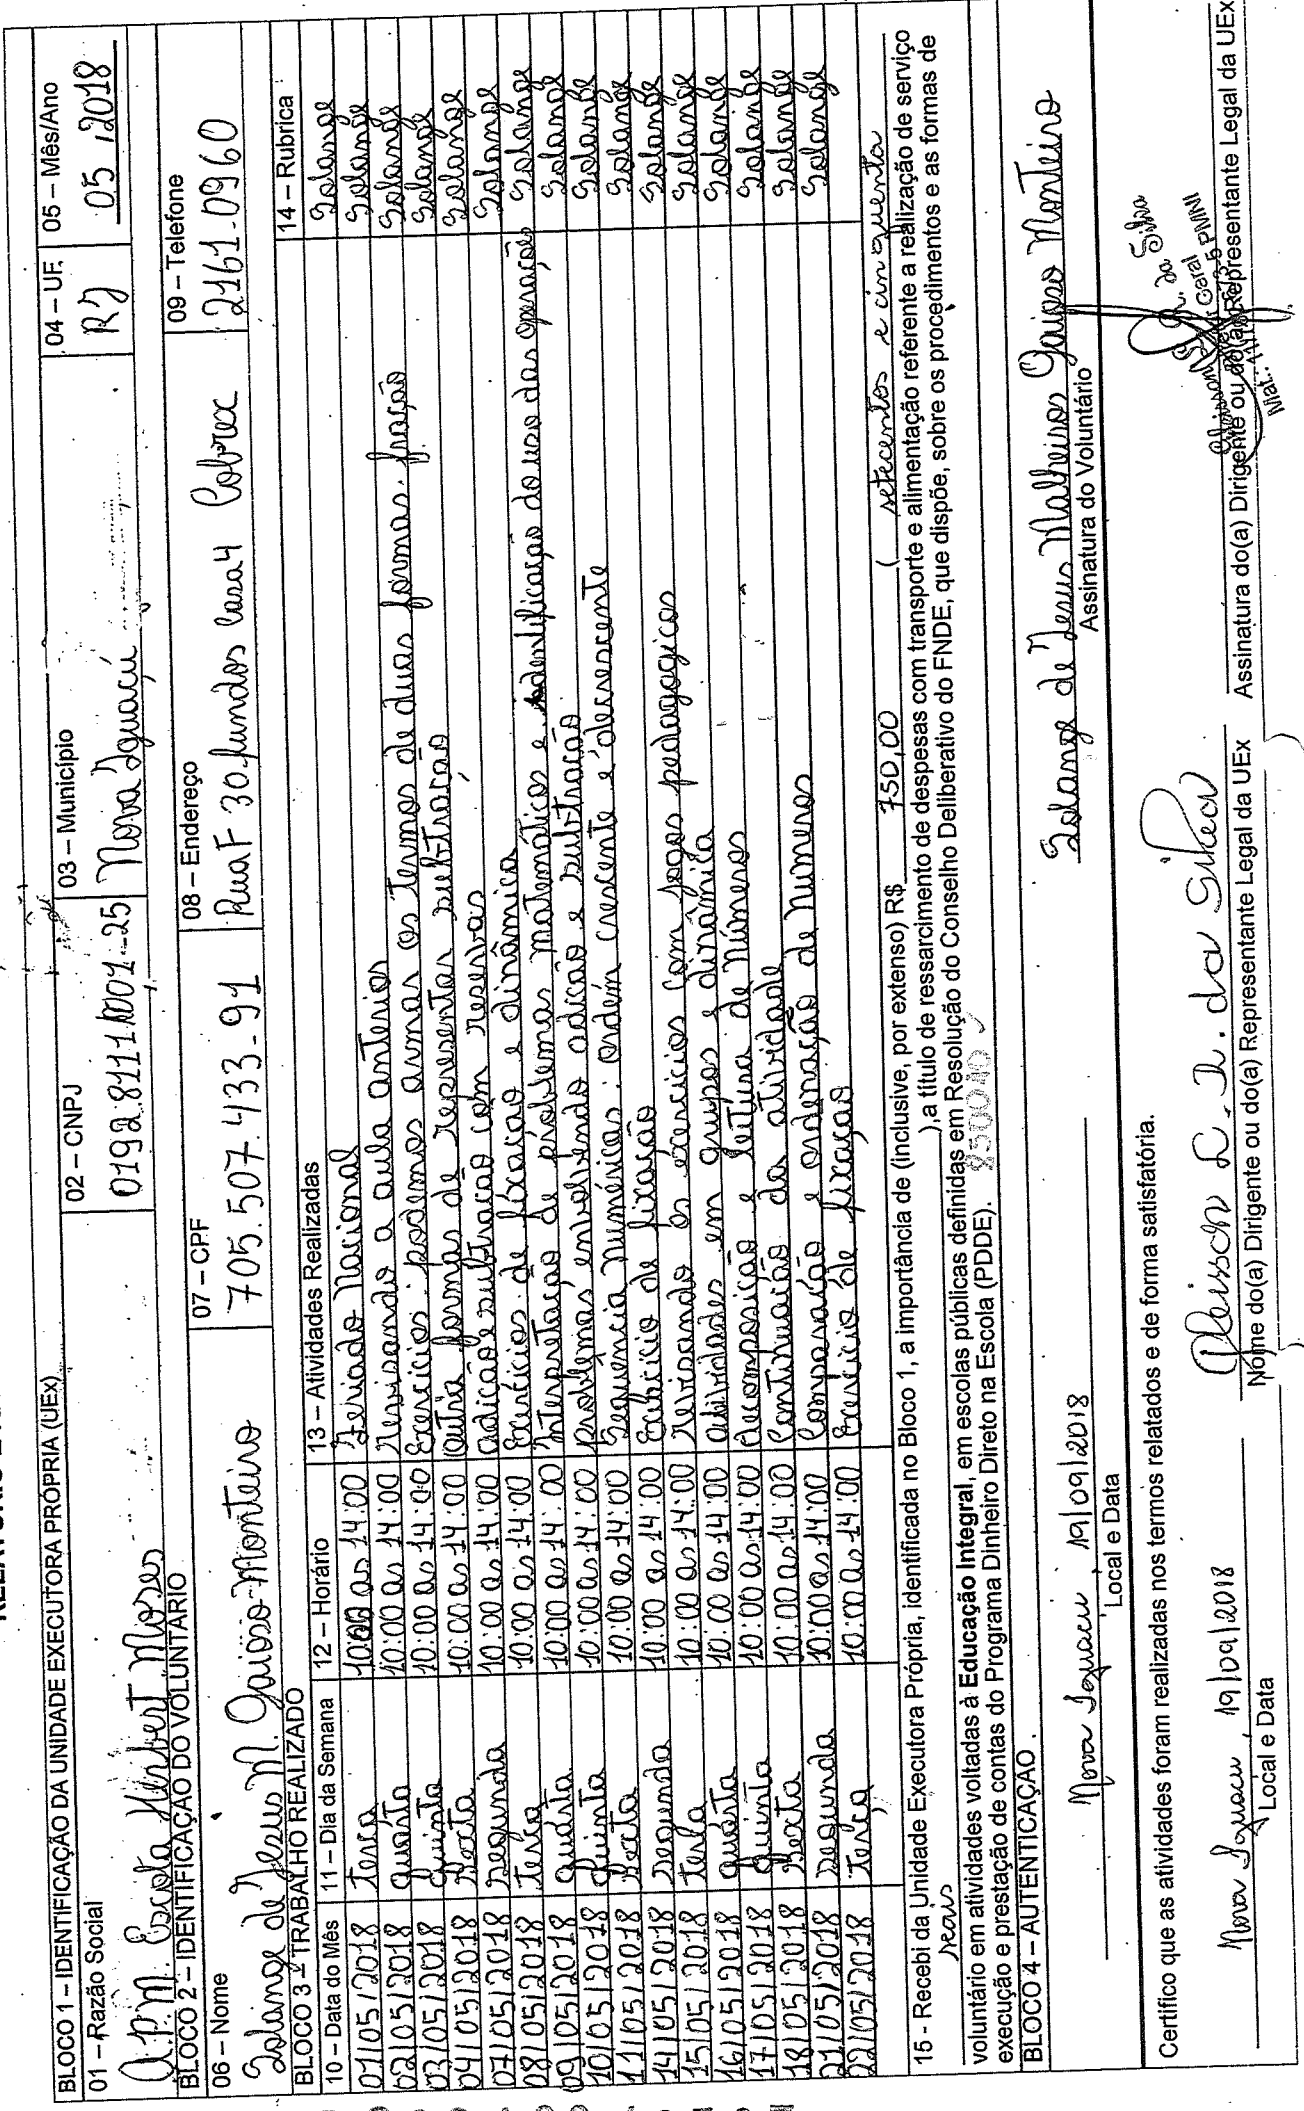 BLOCO 1 – IDENTIFICAÇÃO DA UNIDADE EXECUTORA PRÓPRIA (UEx)
01 – Razão Social 02 – CNPJ 03 – Município 04 – UF. 05 – Mês/Ano
A.P.M. Escola Herbert Moses 01928111/0001-25 Nova Iguaçú RJ 05/2018
BLOCO 2 – IDENTIFICAÇÃO DO VOLUNTÁRIO
06 – Nome 07 – CPF 08 – Endereço 09 – Telefone
Solange de Jesus M. Gaioso Monteiro 705.507.433-91 Rua F 30 fundos casa 4 Cobrex 2161-0960
BLOCO 3 – TRABALHO REALIZADO
10 – Data do Mês 11 – Dia da Semana 12 – Horário 13 – Atividades Realizadas 14 – Rubrica
01/05/2018 terça 10:00 as 14:00 Feriado Nacional Solange
02/05/2018 quarta 10:00 as 14:00 revisando a aula anterior Solange
03/05/2018 quinta 10:00 as 14:00 Exercicios: podemos armar os termos de duas formas. fração Solange
04/05/2018 sexta 10:00 as 14:00 outra formas de representar subtração Solange
07/05/2018 segunda 10:00 as 14:00 adição e subtração com reservas Solange
08/05/2018 terça 10:00 as 14:00 Exercícios de fixação e dinâmica Solange
09/05/2018 quarta 10:00 as 14:00 Interpretação de problemas matemáticos e identificação do uso das operações Solange
10/05/2018 quinta 10:00 as 14:00 problemas envolvendo adição e subtração Solange
11/05/2018 sexta 10:00 as 14:00 Sequência numéricas: ordem crescente e decrescente Solange
14/05/2018 segunda 10:00 as 14:00 Exercicio de fixação Solange
15/05/2018 terça 10:00 as 14:00 revisando os exercicios com jogos pedagogicos Solange
16/05/2018 quarta 10:00 as 14:00 atividades em grupos e dinâmica Solange
17/05/2018 quinta 10:00 as 14:00 decomposição e leitura de números Solange
18/05/2018 sexta 10:00 as 14:00 Continuação da atividade Solange
21/05/2018 segunda 10:00 as 14:00 Comparação e ordenação de números Solange
22/05/2018 terça 10:00 as 14:00 Exercício de fixação Solange
15 - Recebi da Unidade Executora Própria, identificada no Bloco 1, a importância de (inclusive, por extenso) R$ 750,00 ( setecentos e cinquenta
reais ),a título de ressarcimento de despesas com transporte e alimentação referente a realização de serviço
voluntário em atividades voltadas à Educação Integral, em escolas públicas definidas em Resolução do Conselho Deliberativo do FNDE, que dispõe, sobre os procedimentos e as formas de
execução e prestação de contas do Programa Dinheiro Direto na Escola (PDDE).
BLOCO 4 – AUTENTICAÇÃO.
Nova Iguacu, 19/09/2018 Solange de Jesus Malheiros Gaioso Monteiro
Local e Data Assinatura do Voluntário
Certifico que as atividades foram realizadas nos termos relatados e de forma satisfatória.
Nova Iguacu, 19/09/2018 Gleisson L. D. da Silva
Local e Data Nome do(a) Dirigente ou do(a) Representante Legal da UEx Assinatura do(a) Dirigente ou do(a) Representante Legal da UEx
da Silva
Geral PMNI
Mat.: